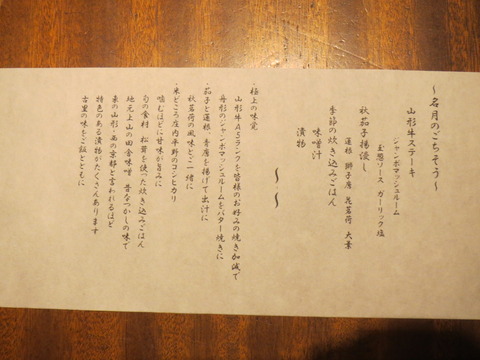 ～名月のごちそう～
山形牛ステーキ
ジャンボマッシュルーム
玉葱ソース ガーリック塩
秋茄子揚浸し
蓮根 獅子唐 茗荷 大葉
季節の炊き込みごはん
味噌汁
漬物
～ ～
・極上の味覚
山形牛A5ランクを皆様のお好みの焼き加減で
舟形のジャンボマッシュルームをバター焼きに
・茄子と蓮根、青唐を揚げて出汁に
秋茗荷の風味とご一緒に
・米どころ庄内平野のコシヒカリ
噛むほどに甘味が旨みに
旬の食材 松茸を使った炊き込みごはん
地元上山の田舎味噌 昔なつかしの味で
東の山形・西の京都と言われるほど
特色のある漬物がたくさんあります
古里の味をご飯とともに